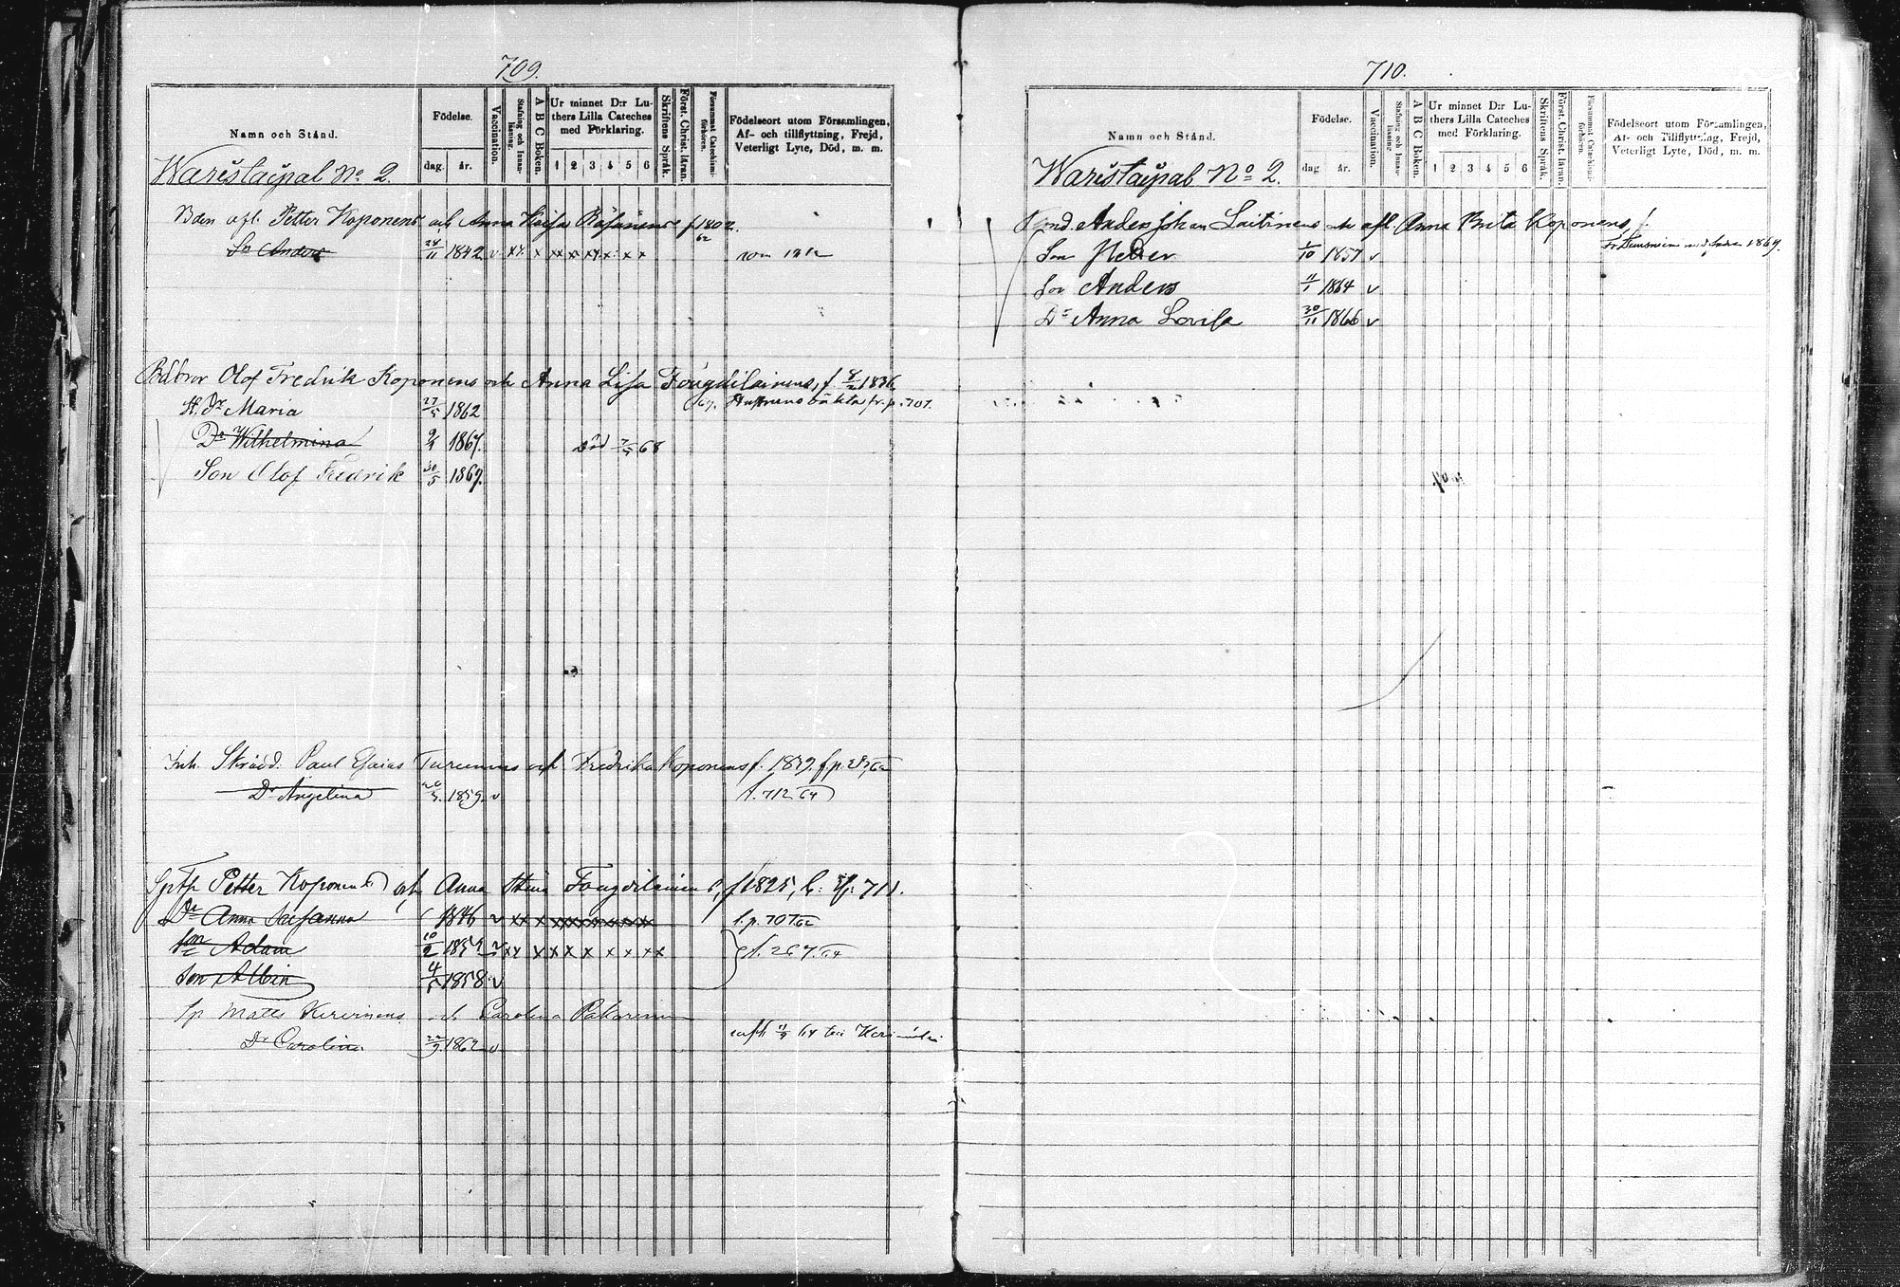 709.
Namn och Stånd.
Födelse.
dag. år.
Vaccination.
Stafning och Innan-läsning.
A B C Boken.
Ur minnet D:r Lu-
thers Lilla Cateches
med Förklaring.
1 2 3 4 5 6
Skriftens Språk.
Först. Christ. läran.
Försummat Catechismi-förhören.
Födelseort utom Församlingen,
Af- och tillflyttning, Frejd,
Veterligt Lyte, Död, m. m.
Waristaipal No 2.
Bden afl. Petter Koponens och Anna Kaisa Räsänens f 1802.
So Anders 28/11 1842 v xx x xx x xx x x x
62
Bdbror Olof Fredrik Koponens och Anna Lisa Fougdilainens, f. 8/2 1836
H. Dr Maria 27/5 1862 67. fr. p. 707.
Dr Wilhelmina 9/4 1867. död 7/7 68
Son Olof Fredrik 30/5 1869.
Inh. Skrädd. Paul Esaias Turunens och Fredrika Koponens f. 1839. f.p.
Dr Angelina 1859. v f. 712 64
Petter Koponens och Anna Stina Fougdilainens, f 1825, 711.
Dr Anna Susanna 1846 v xx x x x x x x x f. p. 707 62
Son Adam 10/2 1852 v xx x x x x x x x x f. 267. 64
Son Albin 4/5 1858 v
Sp Matts Kervinens och Carolina Pakarinen
Dr Carolina 22/9 1862 v 11/9 64
710.
Namn och Stånd.
Födelse.
dag år.
Vaccination.
Stafning och Innan-läsning
A B C Boken.
Ur minnet D:r Lu-
thers Lilla Cateches
med Förklaring.
1 2 3 4 5 6
Skriftens Språk.
Först. Christ. läran.
Försummat Catechismi-förhören.
Födelseort utom Församlingen,
Af- och Tillflyttning, Frejd,
Veterligt Lyte, Död, m. m.
Waristaipal No 2.
Anders Johan Laitinens och afl. Anna Brita Koponens,
Son Petter 1/10 1857 v 1869.
Son Anders 11/1 1864 v
Dr Anna Lovisa 30/11 1866 v